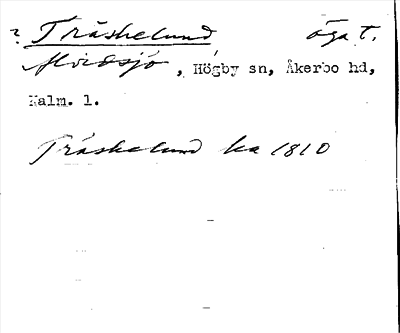 ? Träskelund öga t.
Alvidsjö, Högby sn, Åkerbo hd,
Kalm. l.
Träskelund ha 1810